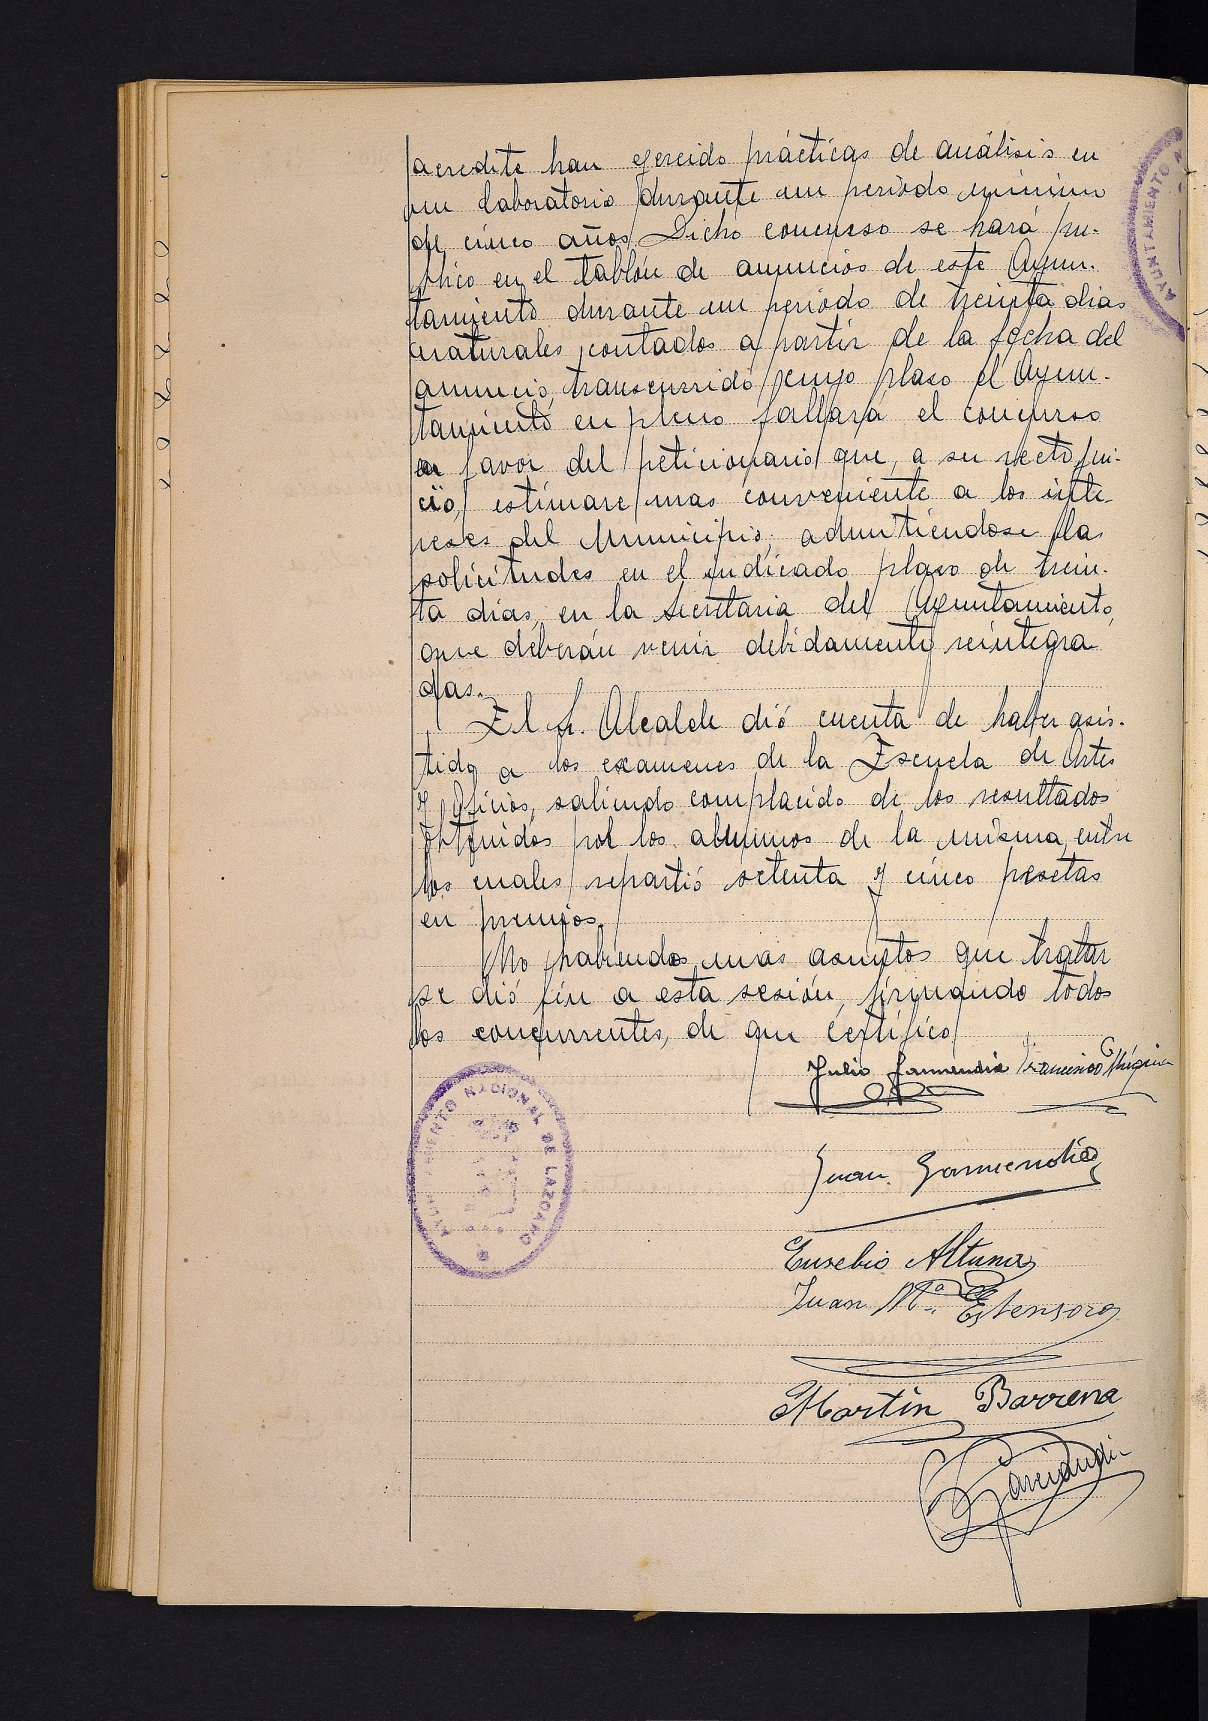 acredite han ejercido prácticas de análisis en
un laboratorio durante un periodo mínimo
de cinco años. Dicho concurso se hará pu-
blico en el tablón de anuncios de este Ayun-
tamiento durante un periodo de treinta dias
naturales, contados a partir de la fecha del
anuncio, transcurrido cuyo plaso el Ayun-
tamiento en pleno fallará el concurso
en favor del peticionario que, a su recto jui-
cio, estimare mas conveniente a los inte-
reses del Municipio; admitiendose las
solicitudes en el indicado plaso de trein-
ta dias, en la Secretaria del Ayuntamiento,
que deberán venir debidamente reintegra
das.
El Sr. Alcalde dió cuenta de haber asis-
tido a los examenes de la Escuela de Artes
y Oficios, saliendo complacido de los resultados
obtenidos por los alumnos de la misma, entre
los cuales repartió setenta y cinco pesetas
en premios.
No habiendo mas asuntos que tratar
se dió fin a esta sesión, firmando todos
los concurrentes, de que certifico
Julio Garmendia Francisco
Juan Garmendia
Eusebio Altuna
Juan Mª Estensoro
Martin Barrena
Garciandia
AYUNTAMIENTO NACIONAL DE LAZCANO
AYUNTAMIENTO